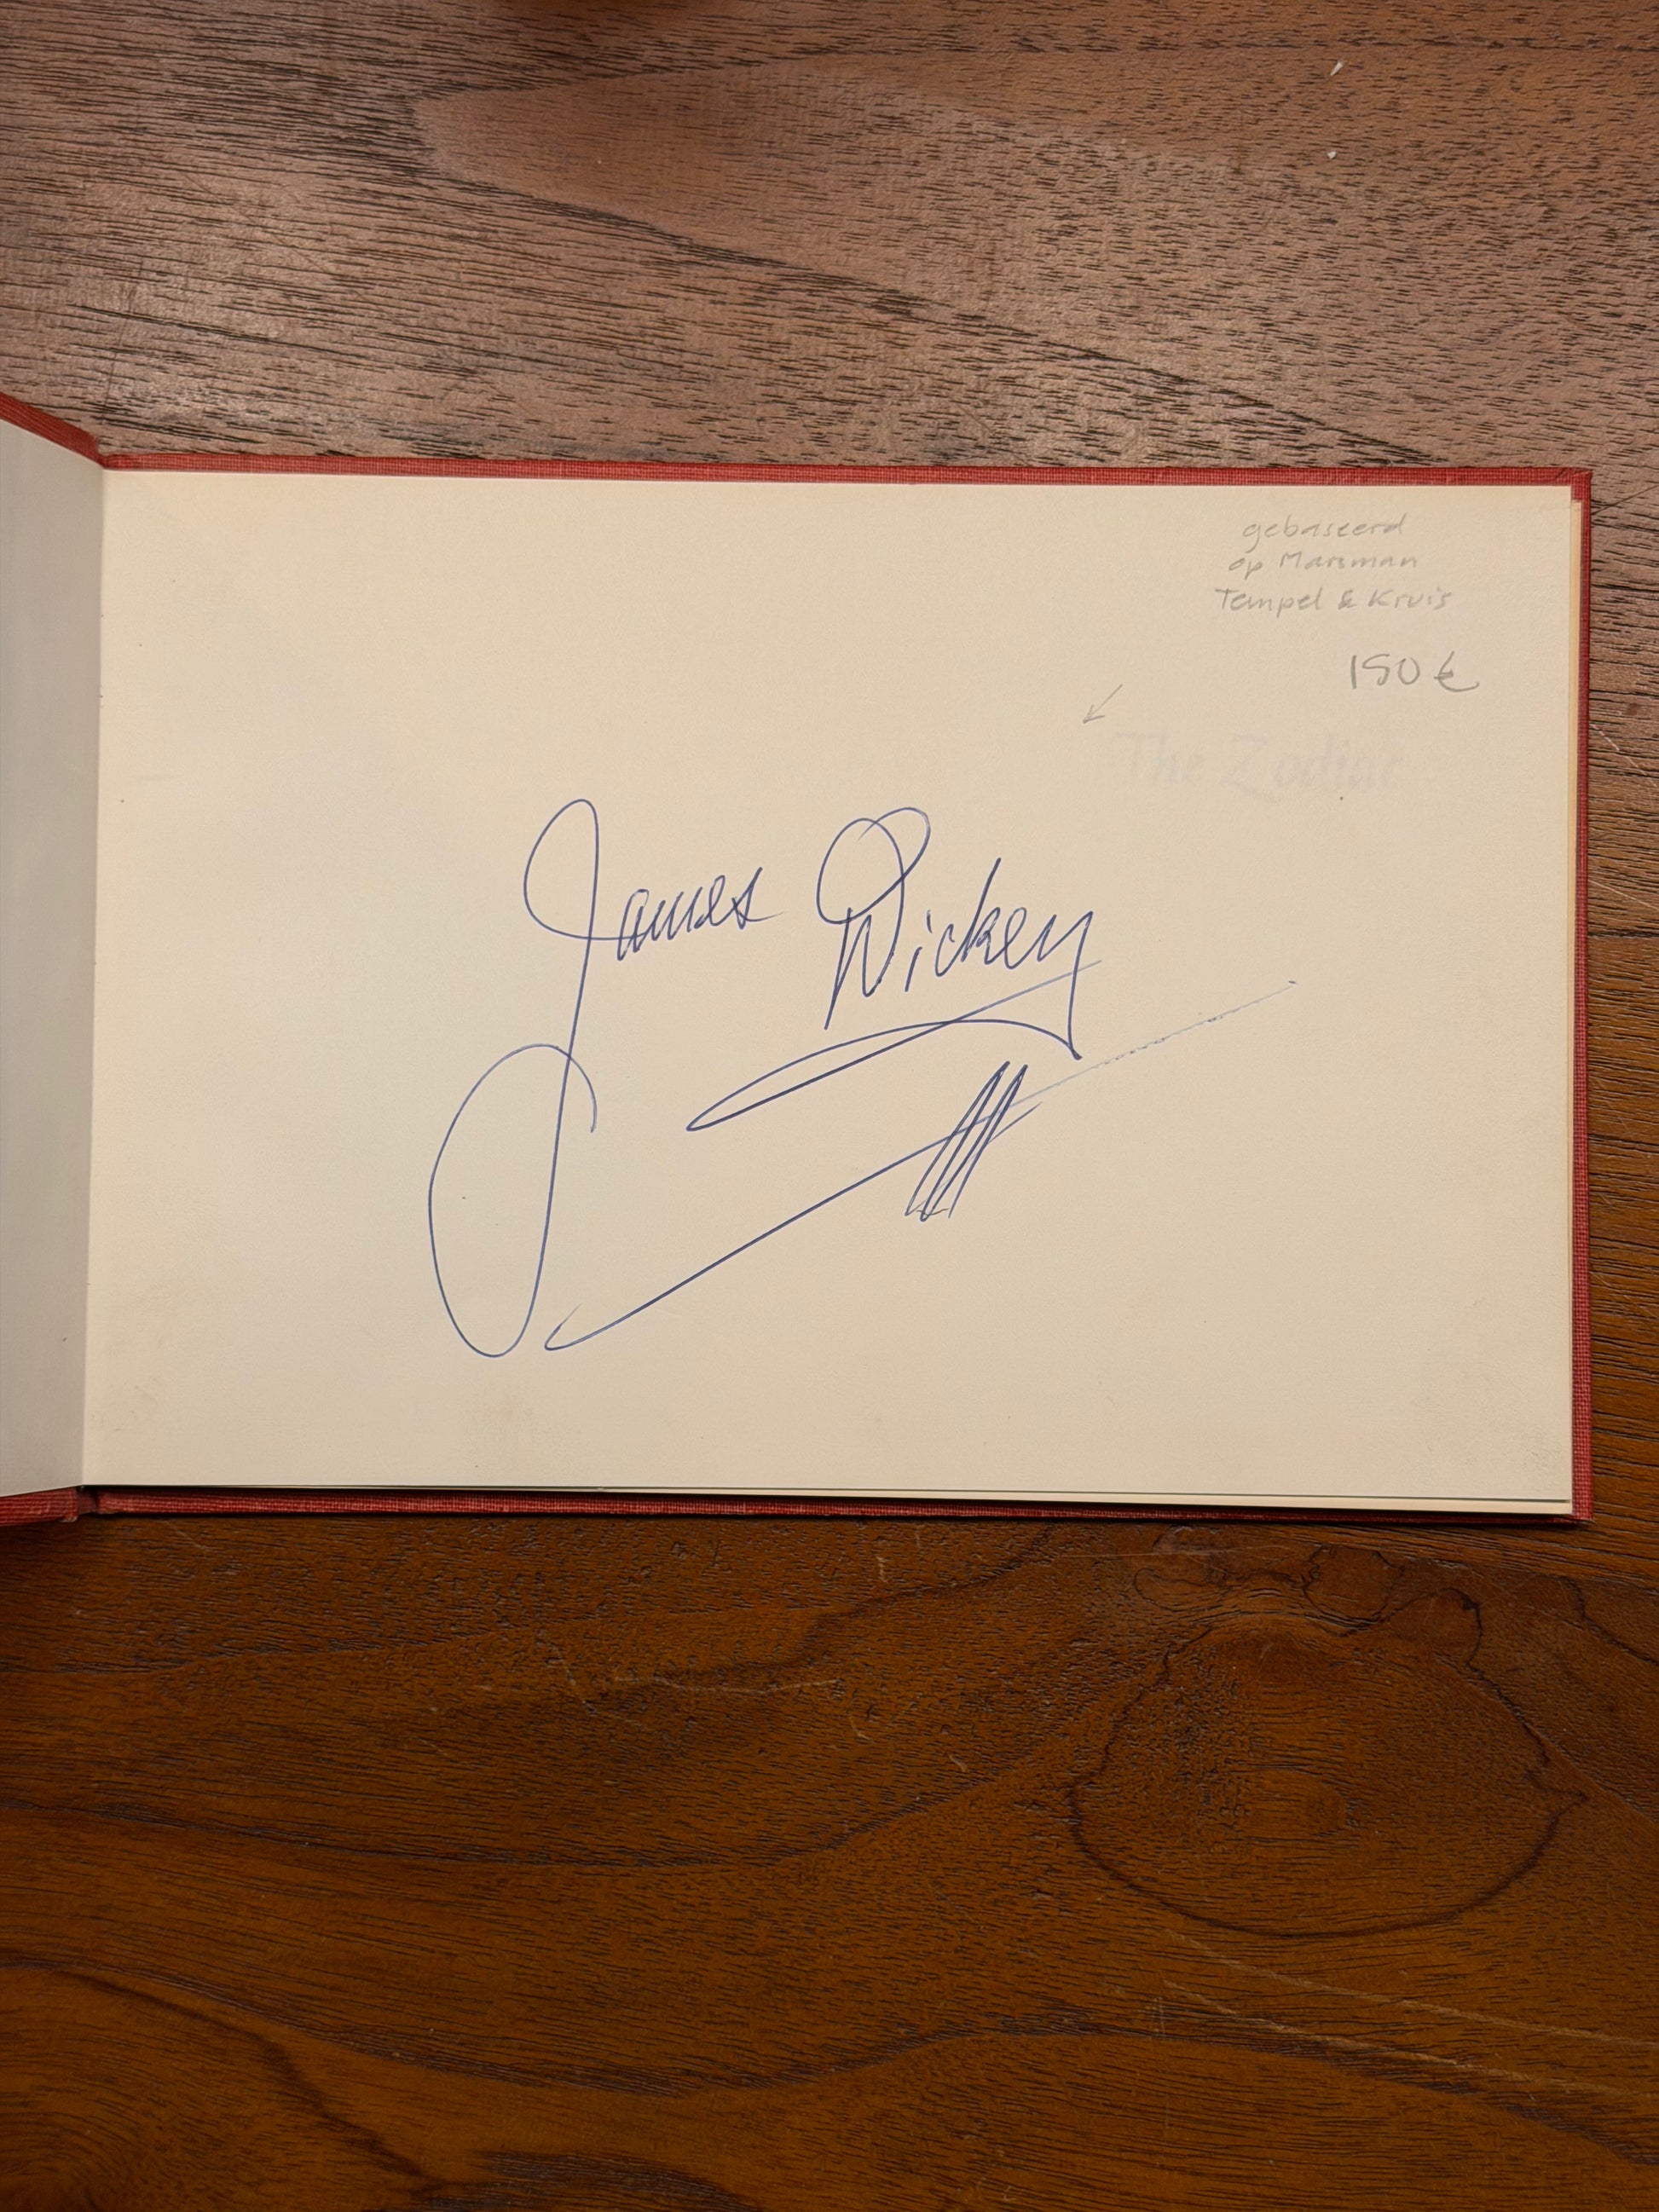 gebaseerd
op Marsman
Tempel & Kruis
150 €
The Zodiac
James Dickey